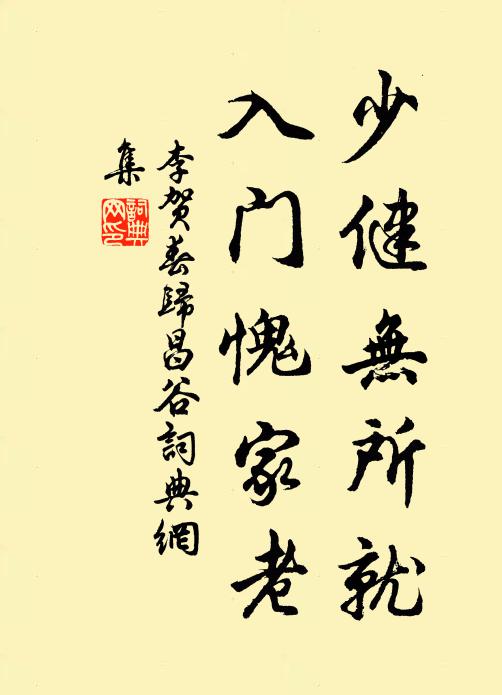 少健無所就
入门愧家老
李贺春歸昌谷詞典網
集
詞典
网印